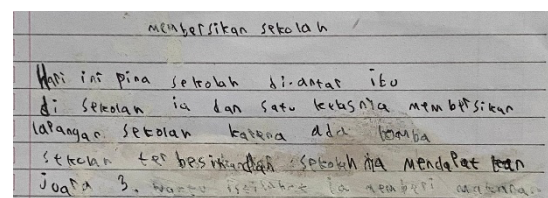 membersikan sekolah
Hari ini pina sekolah di-antar itu
di sekolah ia dan satu kelasnya membersikan
lapangan sekolah karena ada lomba
sekolah ter besih dan sekolah nia mendapat kan
juara 3. waktu istirahat ia memberi makanan